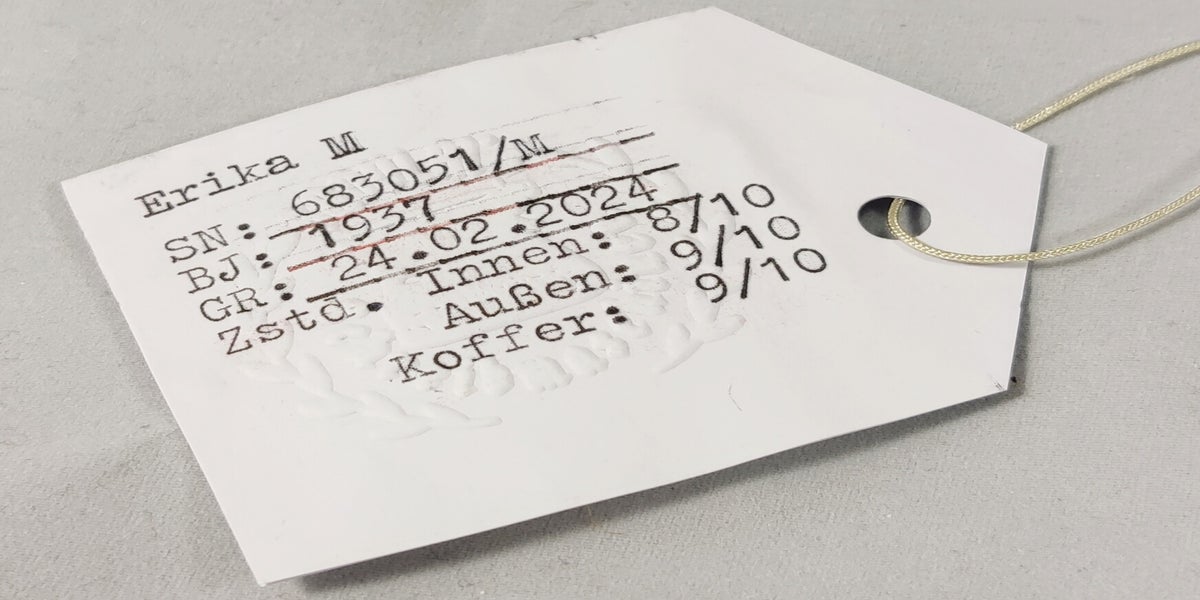 Erika M
SN: 683051/M
BJ: 1937
GR: 24.02.2024
Zstd. Innen: 8/10
Außen: 9/10
Koffer: 9/10